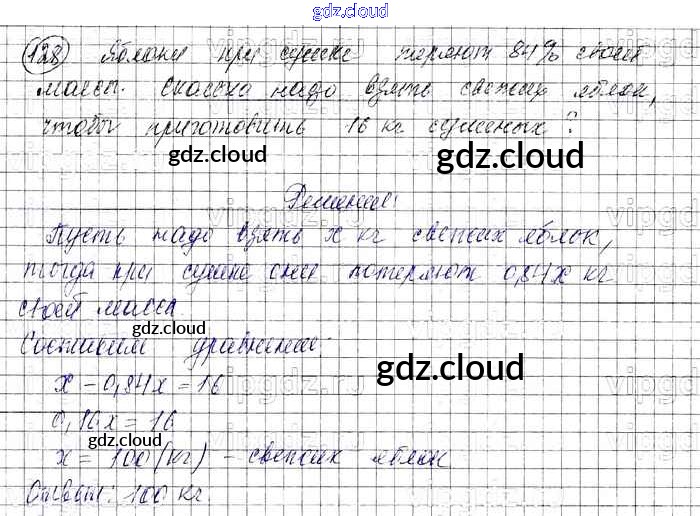 gdz.cloud
128 Яблоки при сушке теряют 84% своей
массы. Сколько надо взять свежих яблок,
чтобы приготовить 16 кг сушеных?
gdz.cloud
gdz.cloud
Решение:
Пусть надо взять x кг свежих яблок,
тогда при сушке они потеряют 0,84x кг
своей массы.
gdz.cloud
Составим уравнение:
gdz.cloud
x - 0,84x = 16
0,16x = 16
gdz.cloud
x = 100 (кг) - свежих яблок
Ответ: 100 кг.
gdz.cloud